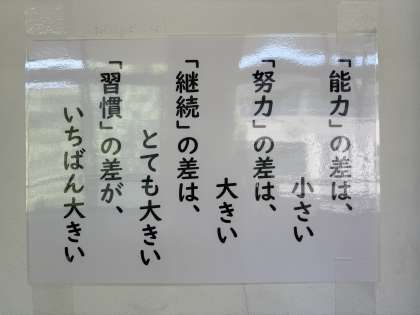 「能力」の差は、
小さい
「努力」の差は、
大きい
「継続」の差は、
とても大きい
「習慣」の差が、
いちばん大きい